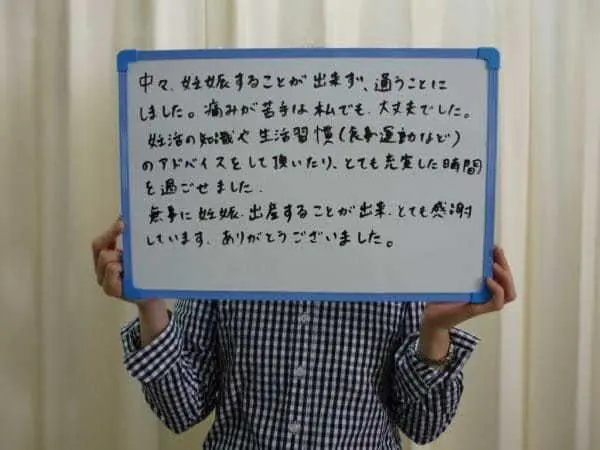 中々、妊娠することが出来ず、通うことに
しました。痛みが苦手は私でも、大丈夫でした。
妊活の知識や生活習慣(食事運動など)
のアドバイスをして頂いたり、とても充実した時間
を過ごせました.
無事に妊娠.出産することが出来、とても感謝
しています、ありがとうございました。